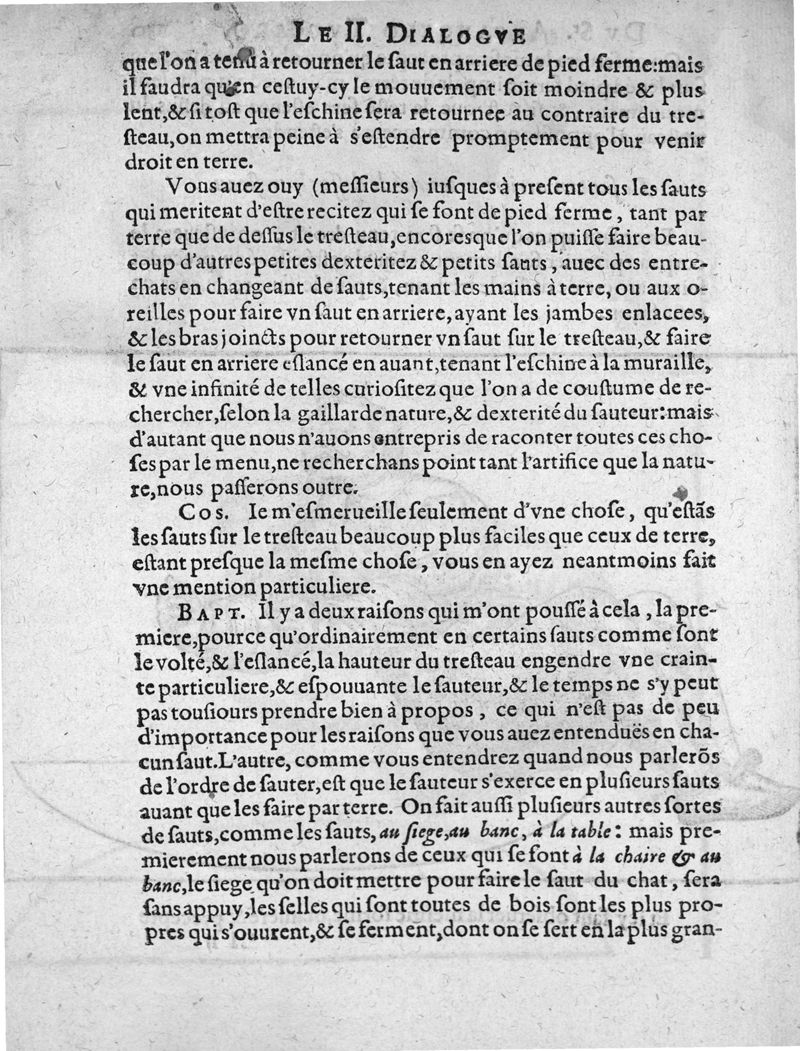 LE II. DIALOGVE
que l'on a tenu à retourner le ſaut en arriere de pied ferme:mais
il faudra qu'en ceſtuy-cy le mouuement ſoit moindre & plus
lent,& ſi toſt que l'eſchine ſera retournee au contraire du tre-
ſteau,on mettra peine à s'eſtendre promptement pour venir
droit en terre.
Vous auez ouy (meſſieurs) iuſques à preſent tous les ſauts
qui meritent d'eſtre recitez qui ſe font de pied ferme, tant par
terre que de deſſus le treſteau,encores que l'on puiſſe faire beau-
coup d'autres petites dexteritez & petits ſauts, auec des entre-
chats en changeant de ſauts,tenant les mains à terre, ou aux o-
reilles pour faire vn ſaut en arriere, ayant les jambes enlacees,
& les bras joincts pour retourner vn ſaut ſur le treſteau,& faire
le ſaut en arriere eſlancé en auant,tenant l'eſchine à la muraille,
& vne infinité de telles curioſitez que l'on a de couſtume de re-
chercher,ſelon la gaillarde nature,& dexterité du ſauteur:mais
d'autant que nous n'auons entrepris de raconter toutes ces cho-
ſes par le menu,ne recherchans point tant l'artifice que la natu-
re,nous paſſerons outre.
COS. Ie m'eſmerueille ſeulement d'vne choſe, qu'eſtãs
les ſauts ſur le treſteau beaucoup plus faciles que ceux de terre,
eſtant preſque la meſme choſe, vous en ayez neantmoins fait
vne mention particuliere.
BAPT. Il y a deux raiſons qui m'ont pouſſé à cela, la pre-
miere,pource qu'ordinairement en certains ſauts comme ſont
le volté,& l'eſlancé,la hauteur du treſteau engendre vne crain-
te particuliere,& eſpouuante le ſauteur,& le temps ne s'y peut
pas touſiours prendre bien à propos, ce qui n'eſt pas de peu
d'importance pour les raiſons que vous auez entenduës en cha-
cun ſaut.L'autre, comme vous entendrez quand nous parlerõs
de l'ordre de ſauter,eſt que le ſauteur s'exerce en pluſieurs ſauts
auant que les faire par terre. On fait auſſi pluſieurs autres ſortes
de ſauts,comme les ſauts, au ſiege,au banc, à la table: mais pre-
mierement nous parlerons de ceux qui ſe font à la chaire & au
banc,le ſiege qu'on doit mettre pour faire le ſaut du chat, ſera
ſans appuy,les ſelles qui ſont toutes de bois ſont les plus pro-
pres qui s'ouurent,& ſe ferment,dont on ſe ſert en la plus gran-